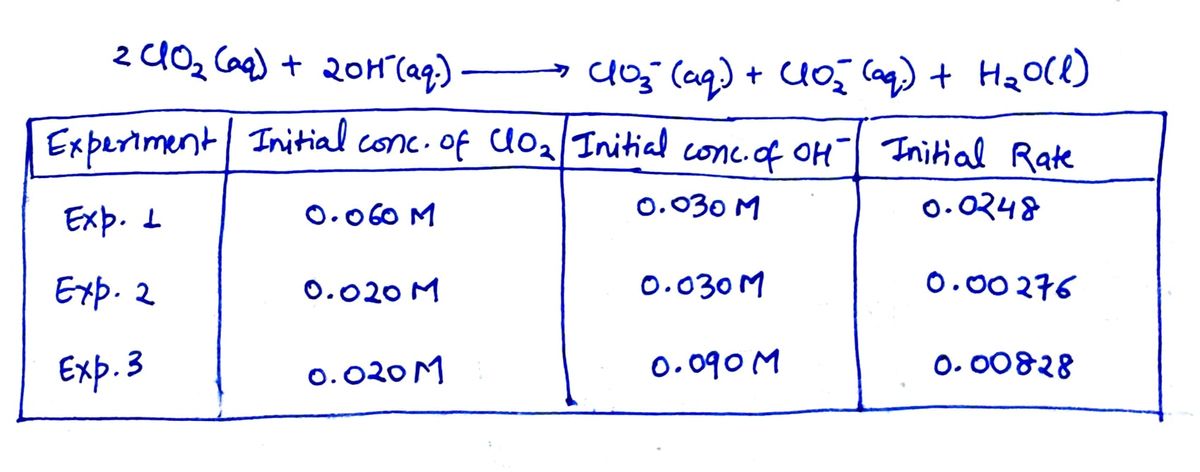 2 ClO₂ (aq) + 2OH⁻(aq.) ⟶ ClO₃⁻ (aq.) + ClO₂⁻ (aq.) + H₂O(l)
Experiment Initial conc. of ClO₂ Initial conc. of OH⁻ Initial Rate
Exp. 1 0.060 M 0.030 M 0.0248
Exp. 2 0.020 M 0.030 M 0.00276
Exp. 3 0.020 M 0.090 M 0.00828